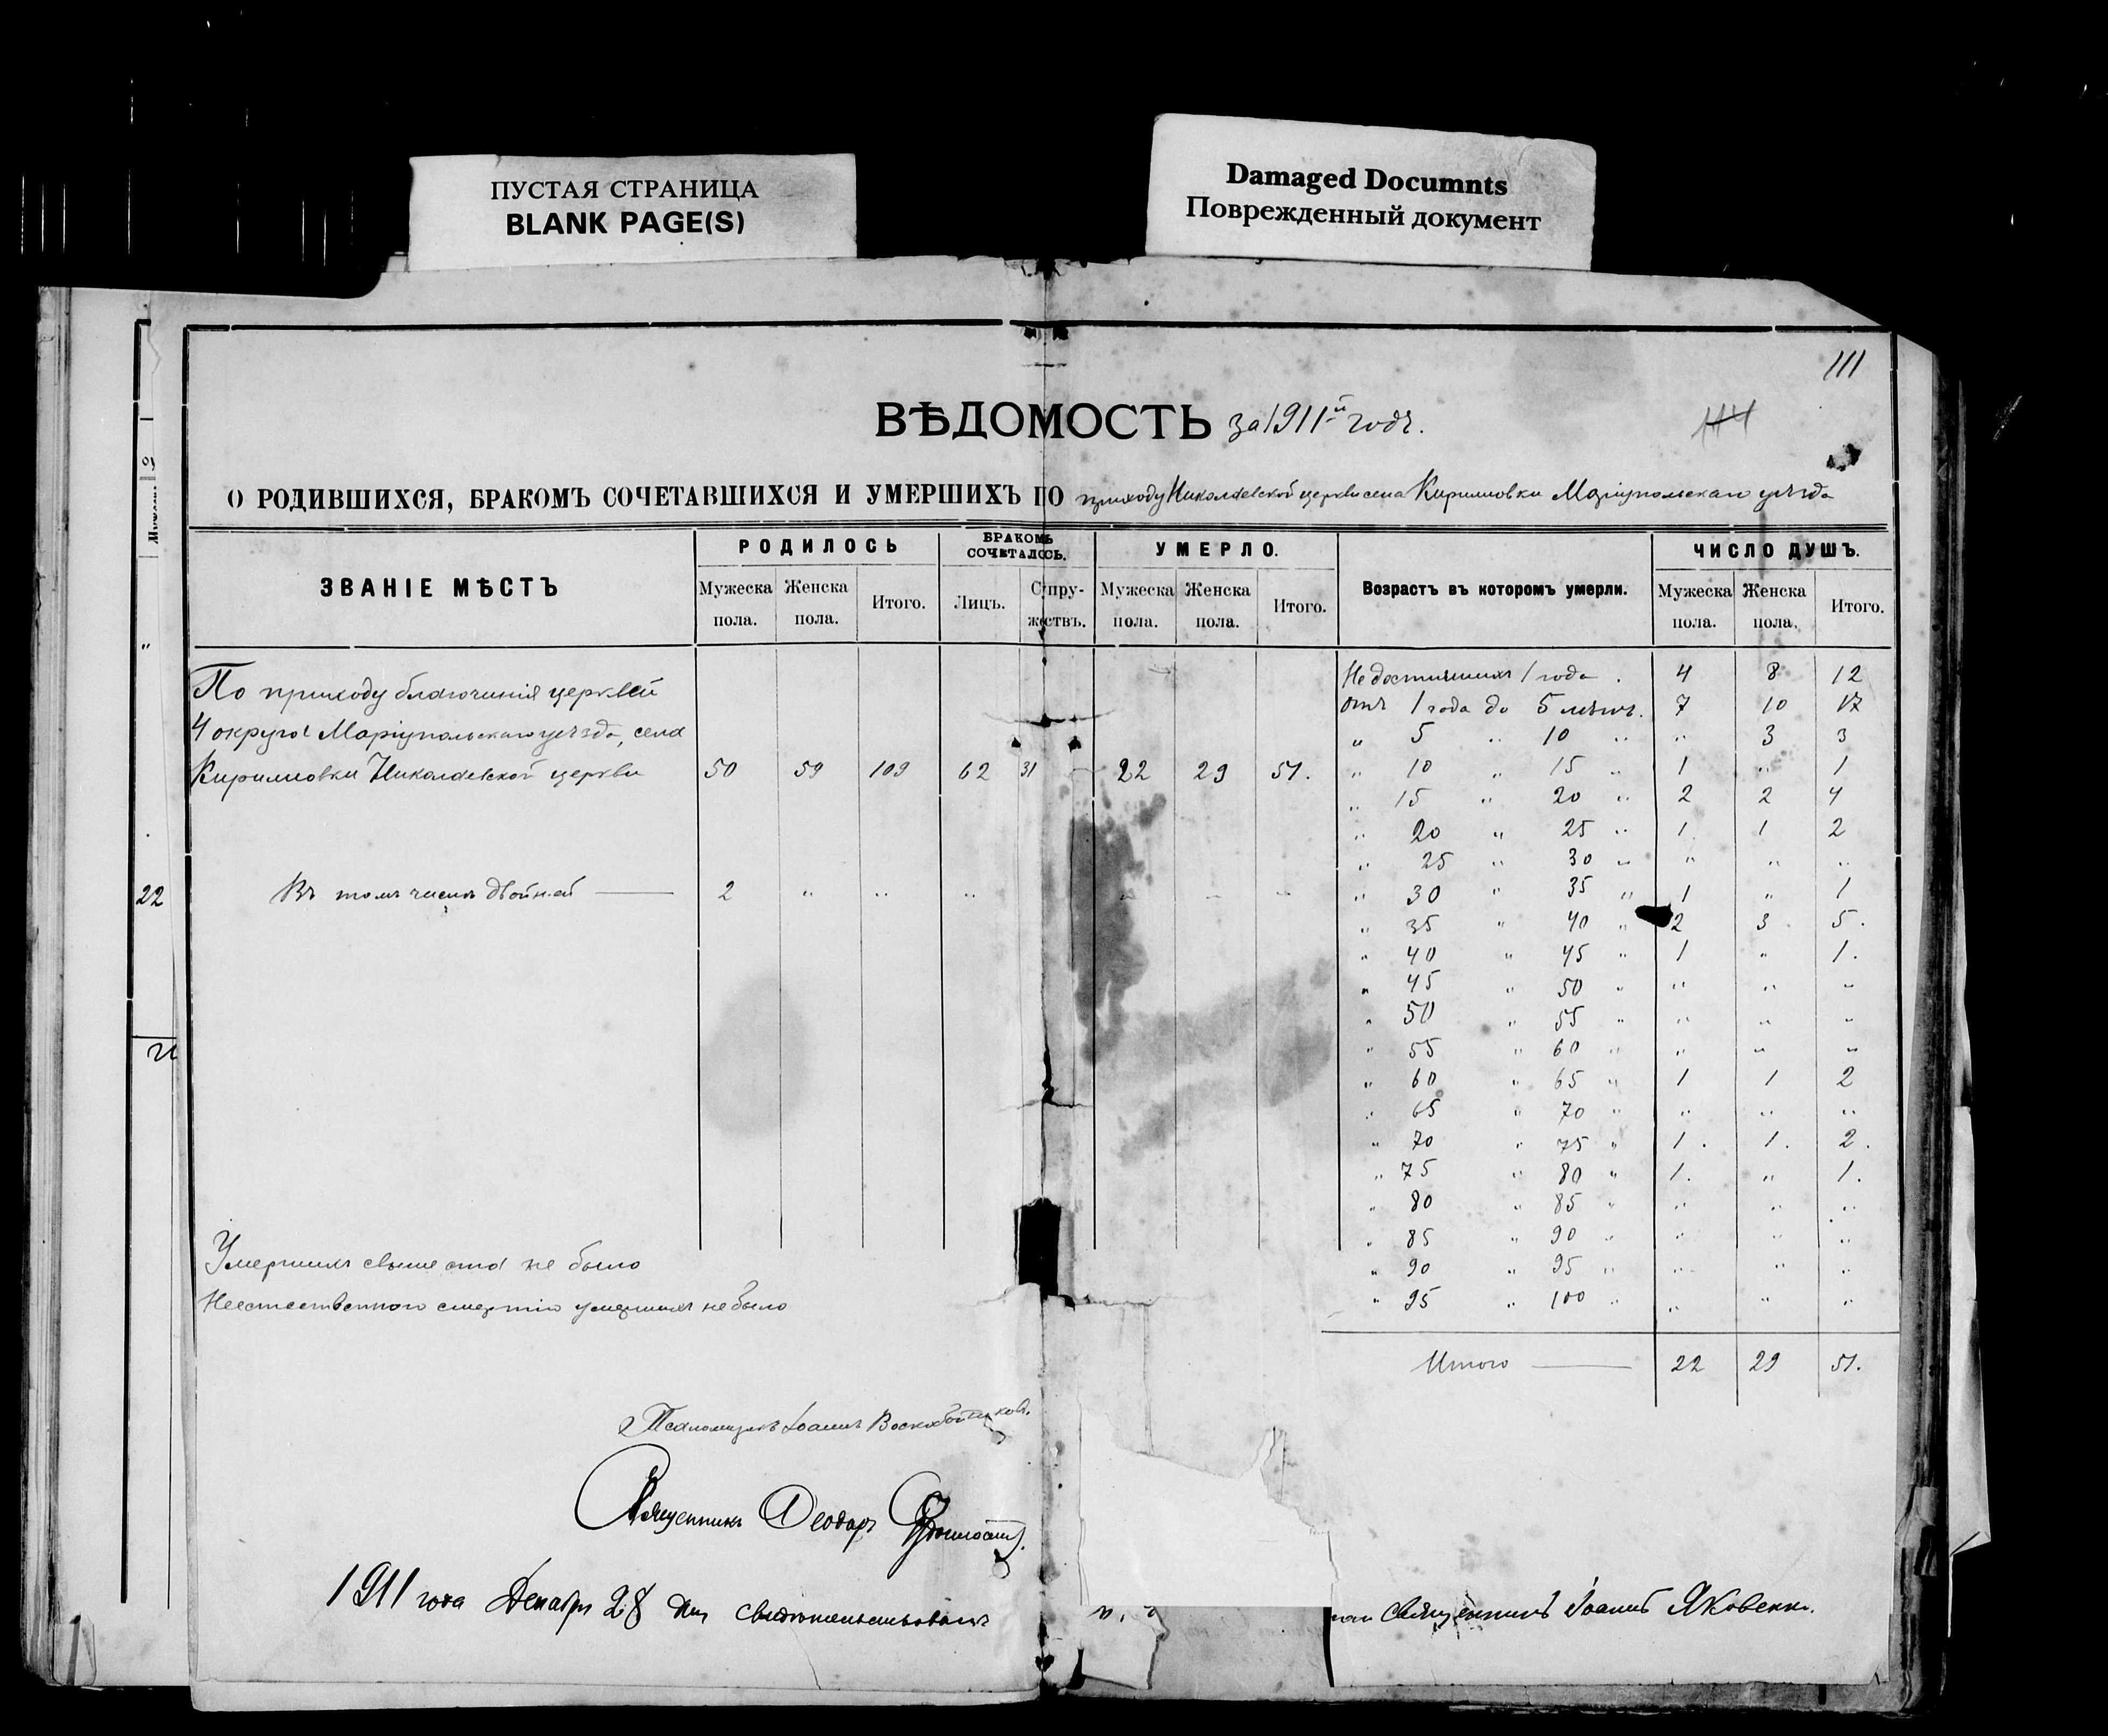 ПУСТАЯ СТРАНИЦА
BLANK PAGE(S)
Damaged Documnts
Поврежденный документ
111
ВѢДОМОСТЬ за 1911й годъ.
О РОДИВШИХСЯ, БРАКОМЪ СОЧЕТАВШИХСЯ И УМЕРШИХЪ ПО приходу Николаевской церкви села Кирилловки Маріупольскаго уѣзда
ЗВАНІЕ МѢСТЪ
РОДИЛОСЬ
Мужеска пола.
Женска пола.
Итого.
БРАКОМЪ СОЧЕТАЛОСЬ.
Лицъ.
Супружествъ.
УМЕРЛО.
Мужеска пола.
Женска пола.
Итого.
Возрастъ въ которомъ умерли.
ЧИСЛО ДУШЪ.
Мужеска пола.
Женска пола.
Итого.
По приходу благочинія церквей
4 округа Маріупольскаго уѣзда, села
Кирилловки Николаевской церкви 50 59 109 62 31 22 29 51.
Въ томъ числѣ двойней — 2 " " " " " "
Умершихъ свыше ста не было
Неестественною смертію умершихъ не было
Недостигшихъ 1 года . 4 8 12
Отъ 1 года до 5 лѣтъ. 7 10 17
" 5 " 10 " " 3 3
" 10 " 15 " 1 " 1
" 15 " 20 " 2 2 4
" 20 " 25 " 1 1 2
" 25 " 30 " " " "
" 30 " 35 " 1 " 1
" 35 " 40 " 2 3 5.
" 40 " 45 " 1 " 1.
" 45 " 50 " " " "
" 50 " 55 " " " "
" 55 " 60 " " " "
" 60 " 65 " 1 1 2
" 65 " 70 " " " "
" 70 " 75 " 1. 1. 2.
" 75 " 80 " 1. " 1.
" 80 " 85 " " " "
" 85 " 90 " " " "
" 90 " 95 " " " "
" 95 " 100 " " " "
Итого — 22 29 51.
Псаломщикъ Іоаннъ Воскобойниковъ.
Священникъ Ѳеодоръ
1911 года Декабря 28 дня свидѣтельствовалъ
священникъ Іоаннъ Яковенко.
22